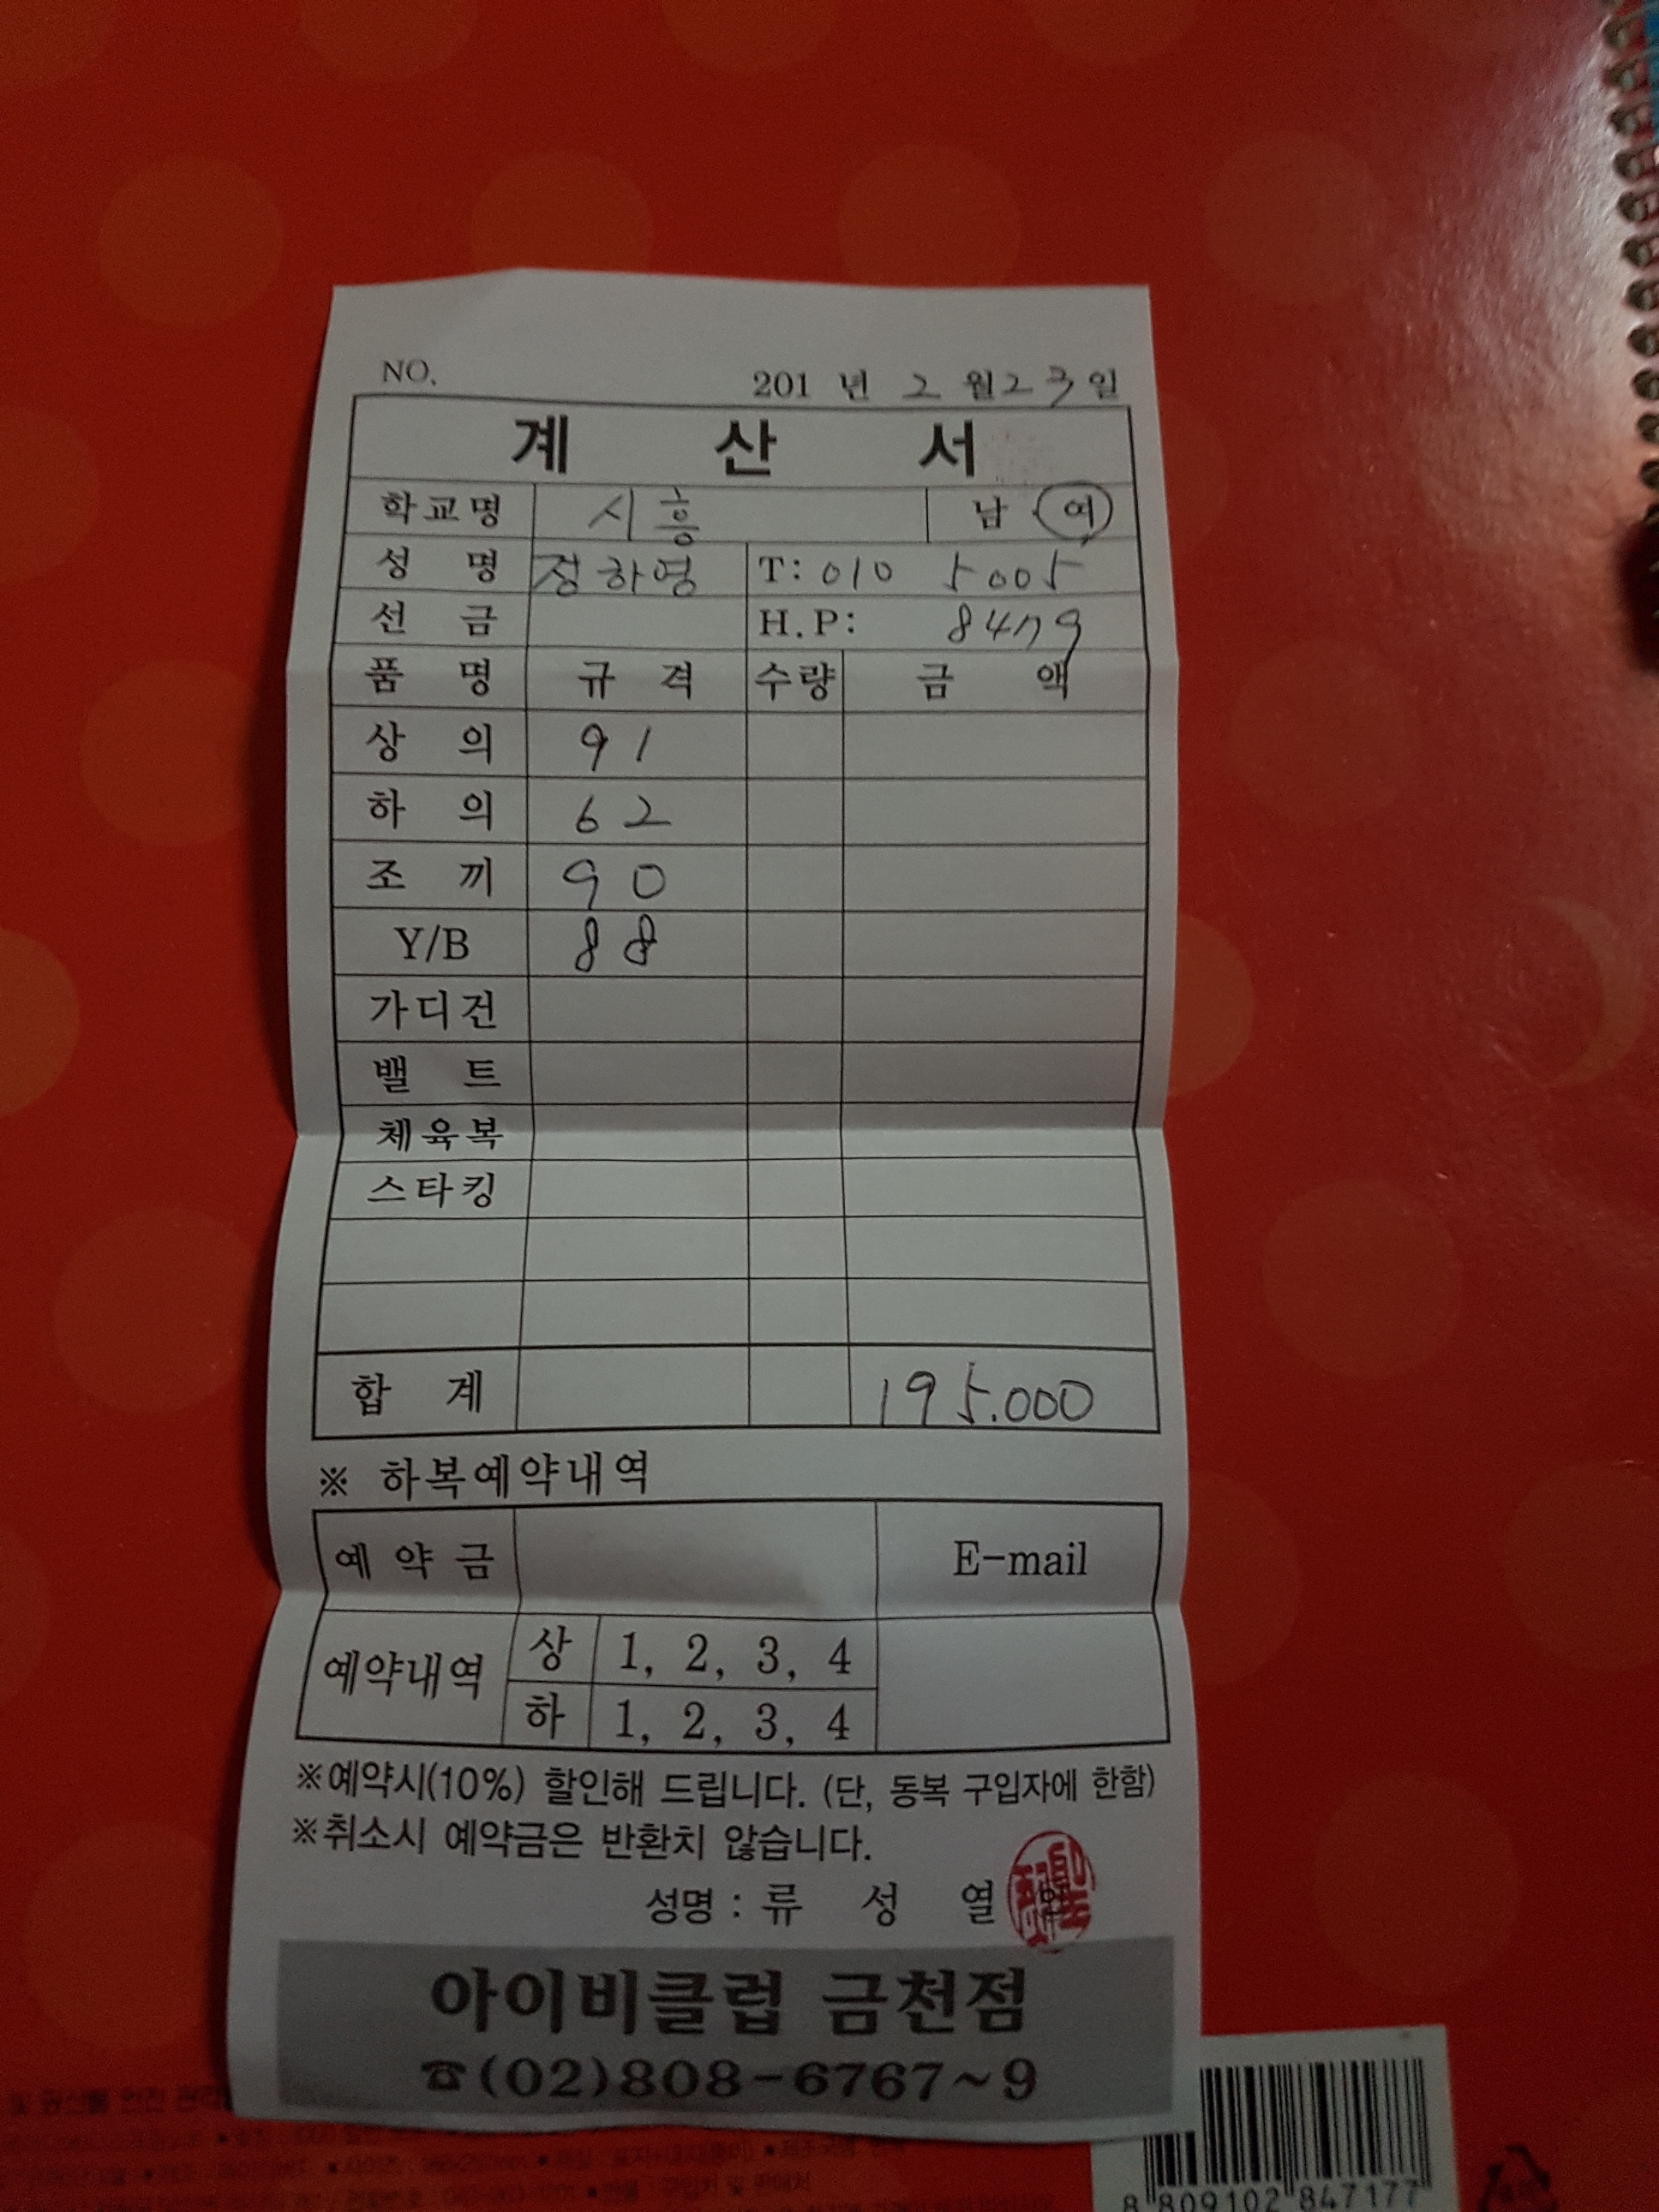 NO. 201 년 2 월 23 일
계 산 서
학교명 시흥 남 여
성 명 정하영 T: 010 5005
선 금 H.P: 8479
품 명 규 격 수량 금 액
상 의 91
하 의 62
조 끼 90
Y/B 88
가디건
밸 트
체육복
스타킹
합 계 195.000
※ 하복예약내역
예 약 금 E-mail
예약내역 상 1, 2, 3, 4
하 1, 2, 3, 4
※예약시(10%) 할인해 드립니다. (단, 동복 구입자에 한함)
※취소시 예약금은 반환치 않습니다.
성명 : 류 성 열 인
아이비클럽 금천점
☎(02)808-6767~9
8 809102 847177